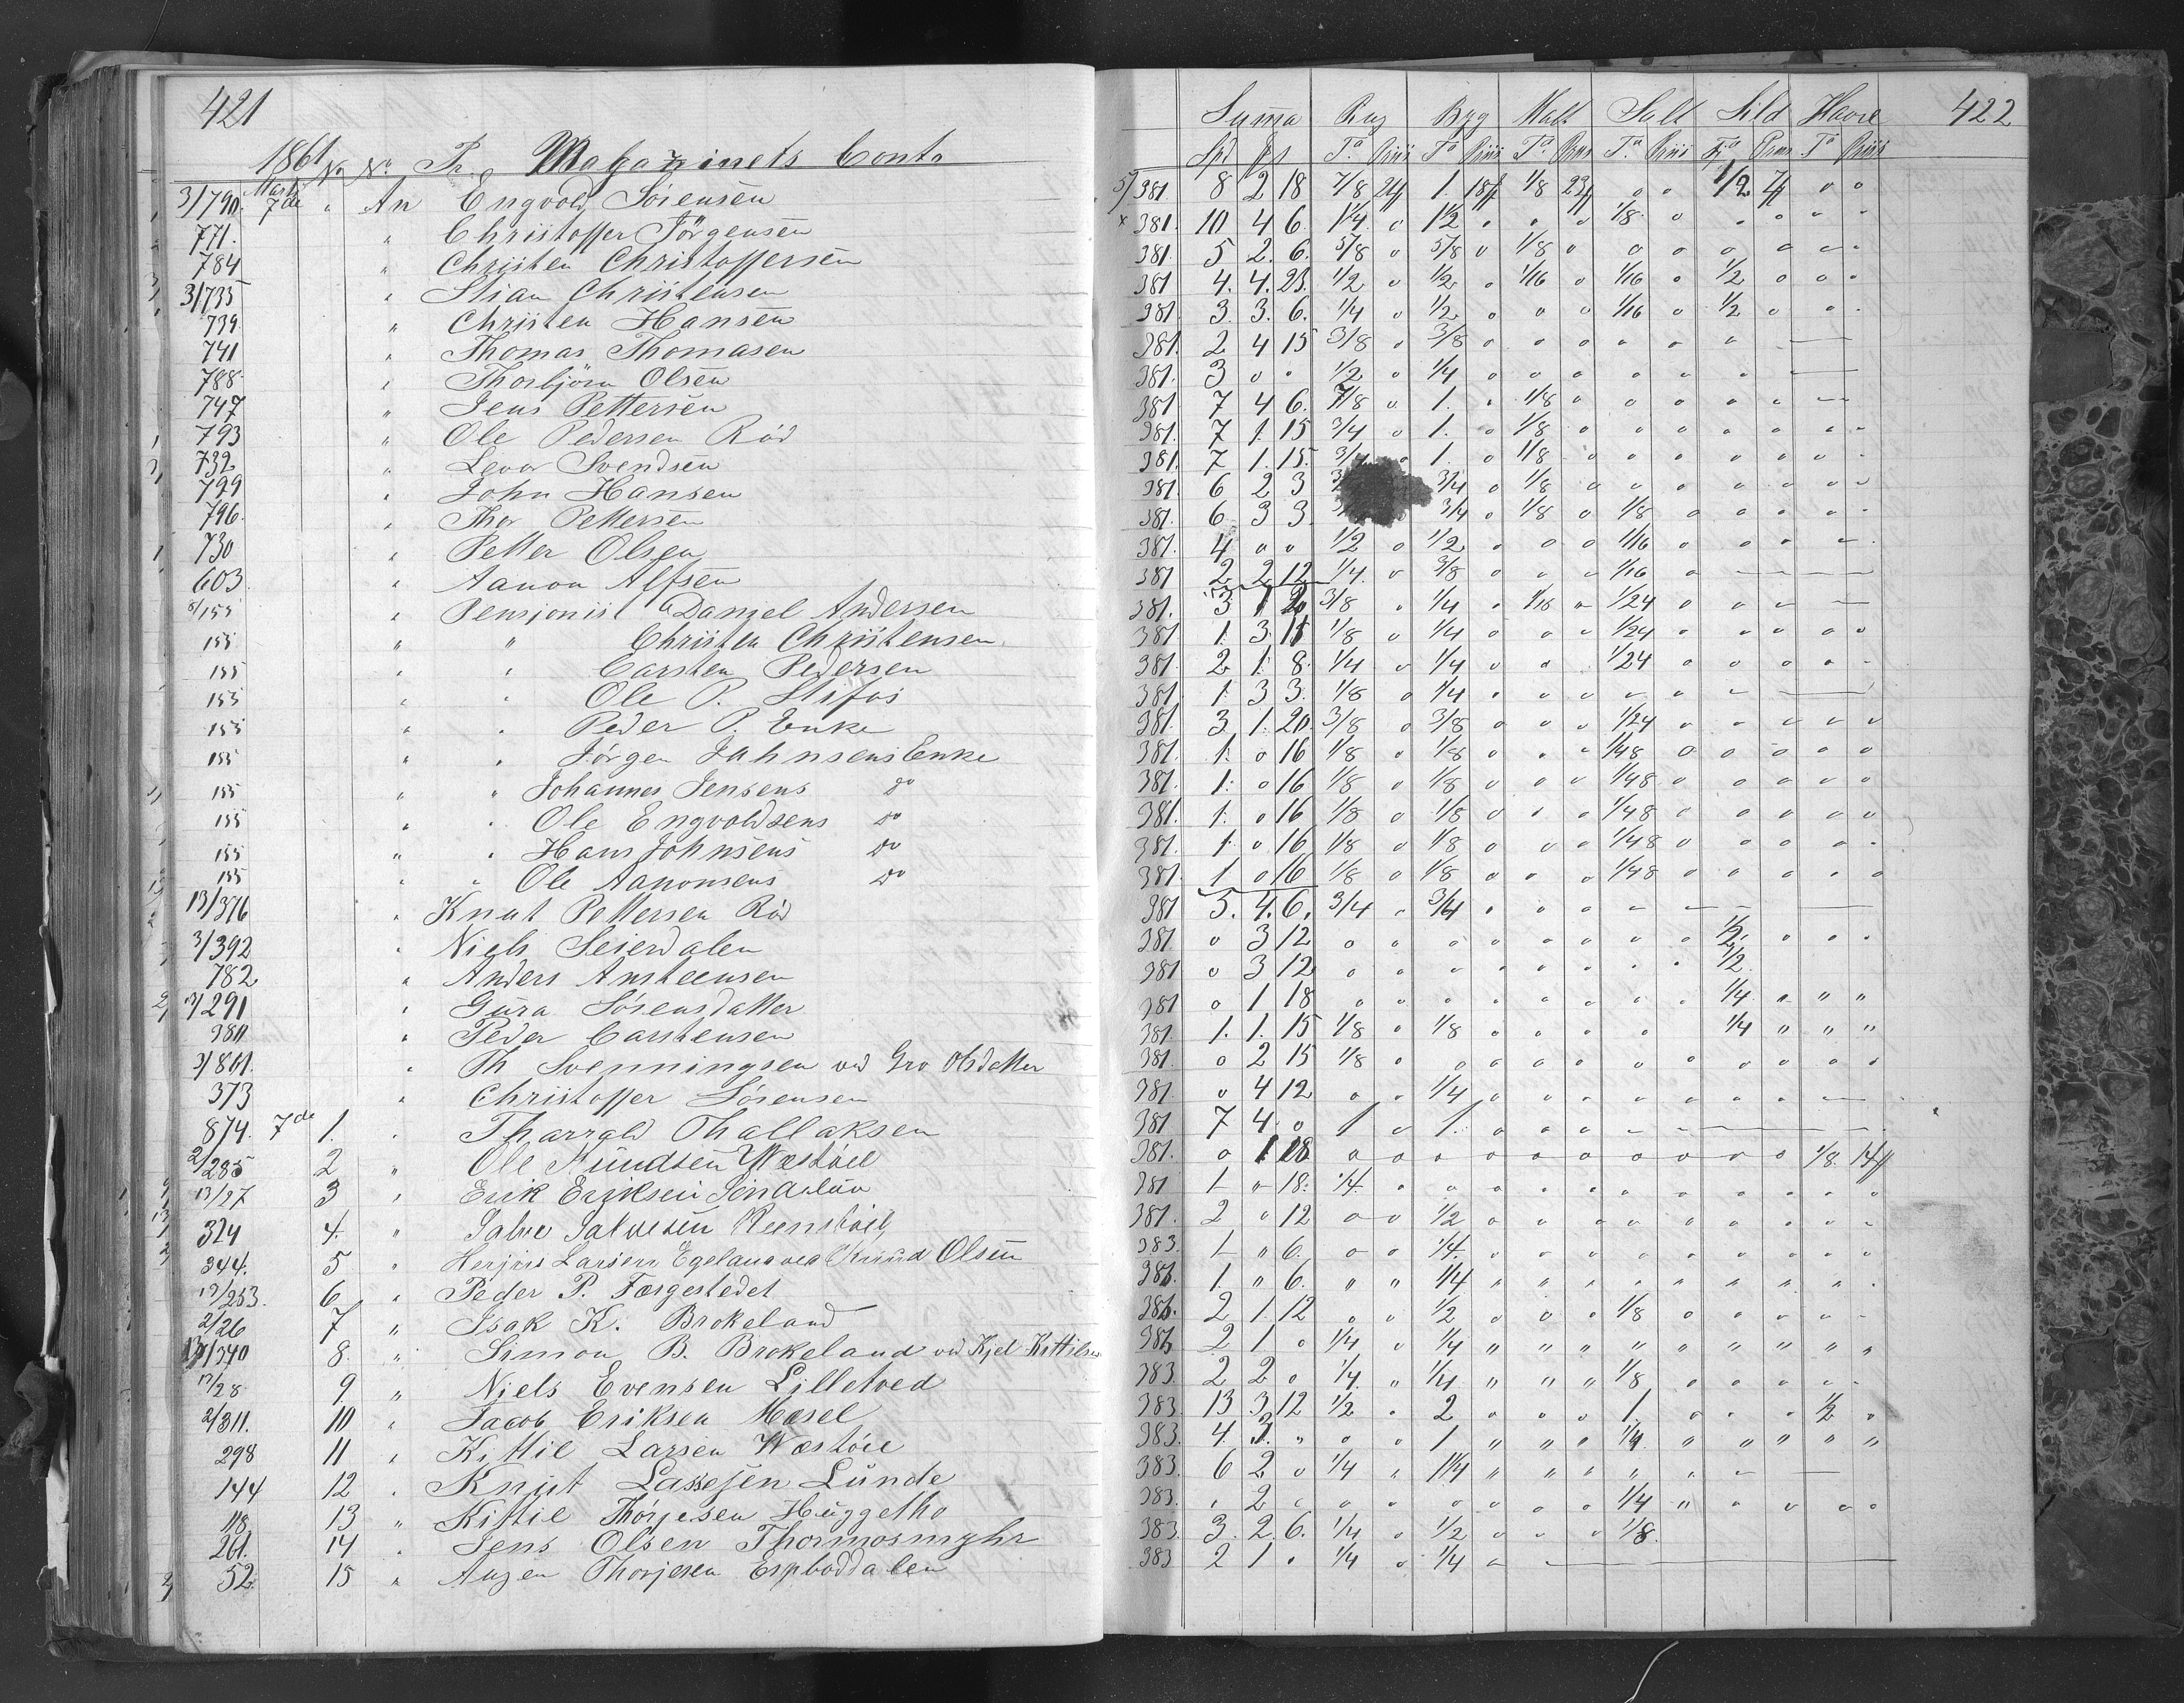 421
1861 No. No. Pr. Magazinets Conto
3/790. Marts 7de " An Engvold Sörensen
771. " Christoffer Jörgensen
784 " Christen Christoffersen
3/735 " Stian Christensen
739. " Christen Hansen
741 " Thomas Thomasen
788. " Thorbjörn Olsen
747 " Jens Pettersen
793 " Ole Pedersen Röd
732 " Levor Svendsen
729 " John Hansen
796. " Thor Pettersen
730 " Petter Olsen
603. " Aanon Alfsen
8/155 " Pensjonist Danjel Andersen
155 " " Christen Christensen
155 " " Carsten Pedersen
155 " " Ole P. Stifos
155 " " Peder P. Enke
155 " " Jörgen Jahnsens Enke
155 " " Johannes Jensens do
155 " " Ole Engvoldsens do
155 " " Hans Johnsens do
155 " " Ole Aanonsens do
13/376 " Knut Pettersen Röd
3/392 " Niels Seierdalen
782 " Anders Ansteensen
291 " Gura Sörensdatter
380 " Peder Carstensen
3/801. " Th Svenningsen ved Gro Olsdatter
373 " Christoffer Sörensen
874. 7de 1. " Tharrald Thallaksen
2/285 2 " Ole Knudsen Westöil
13/27 3 " Erik Eriksen
324 4. " Salve Salvesen
344. 5 " Larsen Egeland ved Knud Olsen
13/253. 6 " Peder P. Forgestedet
2/26 7 " Isak K. Brokeland
13/340 8. " Simon B. Brokeland ved Kjel Kittilsen
13/28 9 " Niels Evensen Lilletved
2/311. 10 " Jacob Eriksen Moesel
298 11 " Kittil Larsen Westöie
144 12 " Knut Lassesen Lunde
118 13 " Kittil Thorjesen Huggetho
261. 14 " Jens Olsen Thormosmyhr
52. 15 " Augen Thorjesen Espboddalen
422
Summa Rug Byg Malt Salt Sild Havre
Spd Ta Priis Ta Priis Ta Priis Ta Priis Ta Priis
5/381 8 2 18 7/8 24 1. 18 1/8 23 o o 1/2 7 o o
x 381. 10 4 6. 1 1/4 o 1 1/2 o o o 1/8 o o o o o
381. 5 2. 6. 5/8 o 5/8 o 1/8 o o o o o o o
381 4. 4. 23. 1/2 o 1/2 o 1/16 o 1/16 o 1/2 o o o
381 3. 3. 6. 1/4 o 1/2 o o o 1/16 o 1/2 o o o
381. 2 4 15 3/8 o 3/8 o o o o o o
381. 3 o o 1/2 o 1/4 o o o o o o
381 7 4 6. 7/8 o 1. o 1/8 o o o o o
381. 7 1. 15 3/4 o 1. o 1/8 o o o o o o o
381. 7 1. 15. 3/4 o 1. o 1/8 o o o o o o o
381. 6 2 3 3/4 o 1/8 o o o o o o o
381. 6 3 3 3/4 o 1/8 o 1/8 o o o o o
381. 4 o o 1/2 o 1/2 o o o 1/16 o o o o
381 2 2 12 1/4. o 3/8 o o o 1/16 o
381. 3 1 2 3/8 o 1/4 o 1/16 o 1/24 o o o
381 1. 3. 15 1/8 o 1/4 o o o 1/24 o o o o o
381 2 1. 8. 1/4 o 1/4 o o 1/24 o o o o o
381 1. 3 3. 1/8 o 1/4 o o o o o o
381. 3 1. 20. 3/8 o 3/8 o o o 1/24 o o o o o
381. 1. o 16 1/8 o 1/8 o o o 1/48 o o o o o
381 1. o 16 1/8 o 1/8 o o o 1/48. o o o o o
381. 1. o 16 1/8 o 1/8 o o o 1/48 o o o o o
381. 1. o 16 1/8 o 1/8 o o o 1/48 o o o o o
381. 1 o 16 1/8 o 1/8 o o o 1/48 o o o o o
381 5. 4. 6. 3/4 o 3/4 o o o o
381 o 3 12 o o o o o o o o 1/2 o o o
381 o 3 12 o o o o o o o o 1/2
381 o 1 18 o o o o o o o o 1/4 " " "
381. 1. 1. 15 1/8 o 1/8 o o o o 1/4 " " "
381. o 2 15 1/8 o o o o o o o o o o o
381. o 4 12 o o 1/4 o o o o o o o
381 7 4 o 1 o 1. o o o
381. o 1 18 o o o o o o o o o o 1/8. 14
381 1 " 18. 1/4. o o o o o o o o o o o
381. 2 o 12 o o 1/2 o o o o o o o o o
383. 1 " 6. o o 1/4. o o o o o o o o o
383. 1. " 6. " " 1/4 " " " " " " " " "
383. 2 1. 12 o o 1/2 o o o 1/8 o o o o o
383 2 1 o 1/4 o 1/4 " " " " " " " " "
383. 2 2 o 1/4. " 1/4. " " " 1/8 o o o o
383. 13 3. 12 1/2 o 2 o o o 1. o o o 1/2 o
383. 4. 3. " o o 1 " " " 1/4. " " " " "
383. 6 2 o 1/4 " 1 1/4 " " " " "
383. " 2 o o o o o o o 1/4 " o o o o
383. 3. 2. 6. 1/4 o 1/2 o o o 1/8.
383 2 1 o 1/4 o 1/4 o